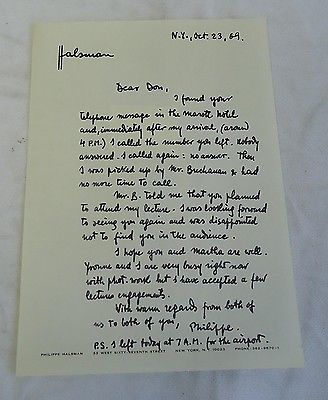 Halsman
N.Y., Oct. 23, 69.
Dear Don,
I found your
telephone message in the hotel
and, immediately after my arrival, (around
4 P.M.) I called the number you left. Nobody
answered. I called again: no answer. Then
I was picked up by Mr. Buchanan & had
no more time to call.
Mr. B. told me that you planned
to attend my lecture. I was looking forward
to seeing you again and was disappointed
not to find you in the audience.
I hope you and Martha are well.
Yvonne and I are very busy right now
with phot. work but I have accepted a few
lecture engagements.
With warm regards from both of
us to both of you, Philippe.
P.S. I left today at 7 A.M. for the airport.
PHILIPPE HALSMAN 33 WEST SIXTY-SEVENTH STREET NEW YORK, N.Y. 10023 PHONE